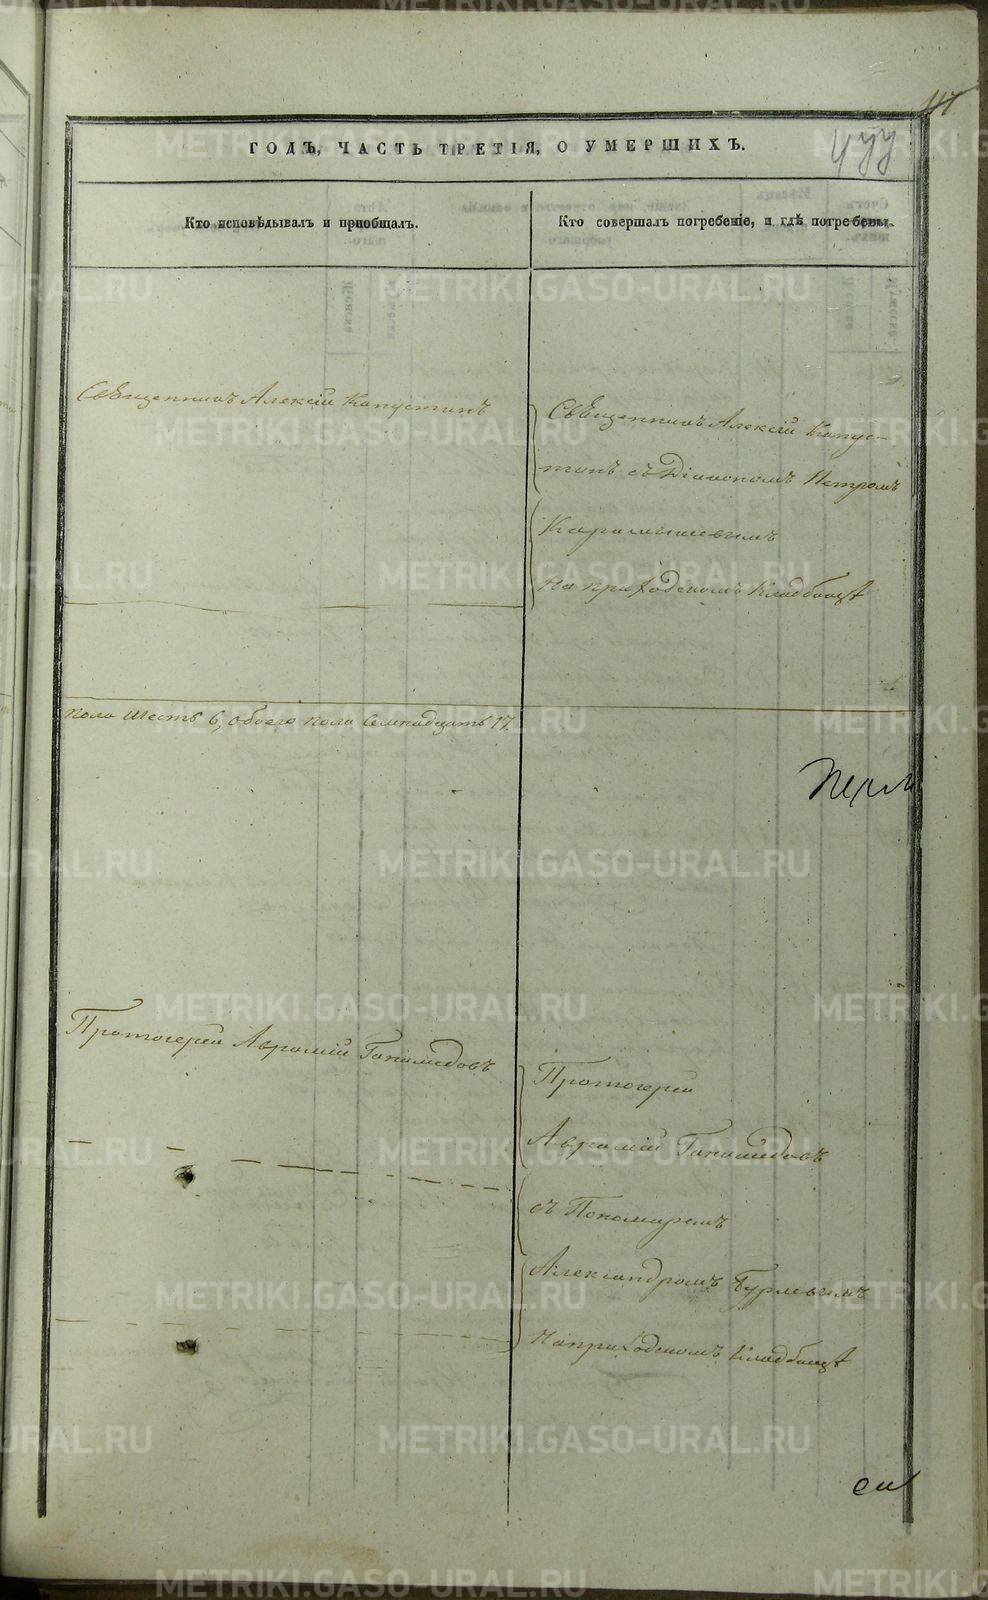 ГОДЪ, ЧАСТЬ ТРЕТІЯ, О УМЕРШИХЪ.
477
Кто исповѣдывалъ и приобщалъ.
Кто совершалъ погребеніе, и гдѣ погребены.
Священникъ Алексій Капустинъ
Священникъ Алексій Капус-
тинъ съ Діакономъ Петромъ
Карамышевымъ
На приходскомъ кладбищѣ
пола шесть 6, обоего пола семнадцать 17.
Протоіерей Аврамій Ганимедовъ
Протоіерей
Аврамій Ганимедовъ
съ Пономаремъ
Александромъ Бурлевымъ
На приходскомъ кладбищѣ
METRIKI.GASO-URAL.RU